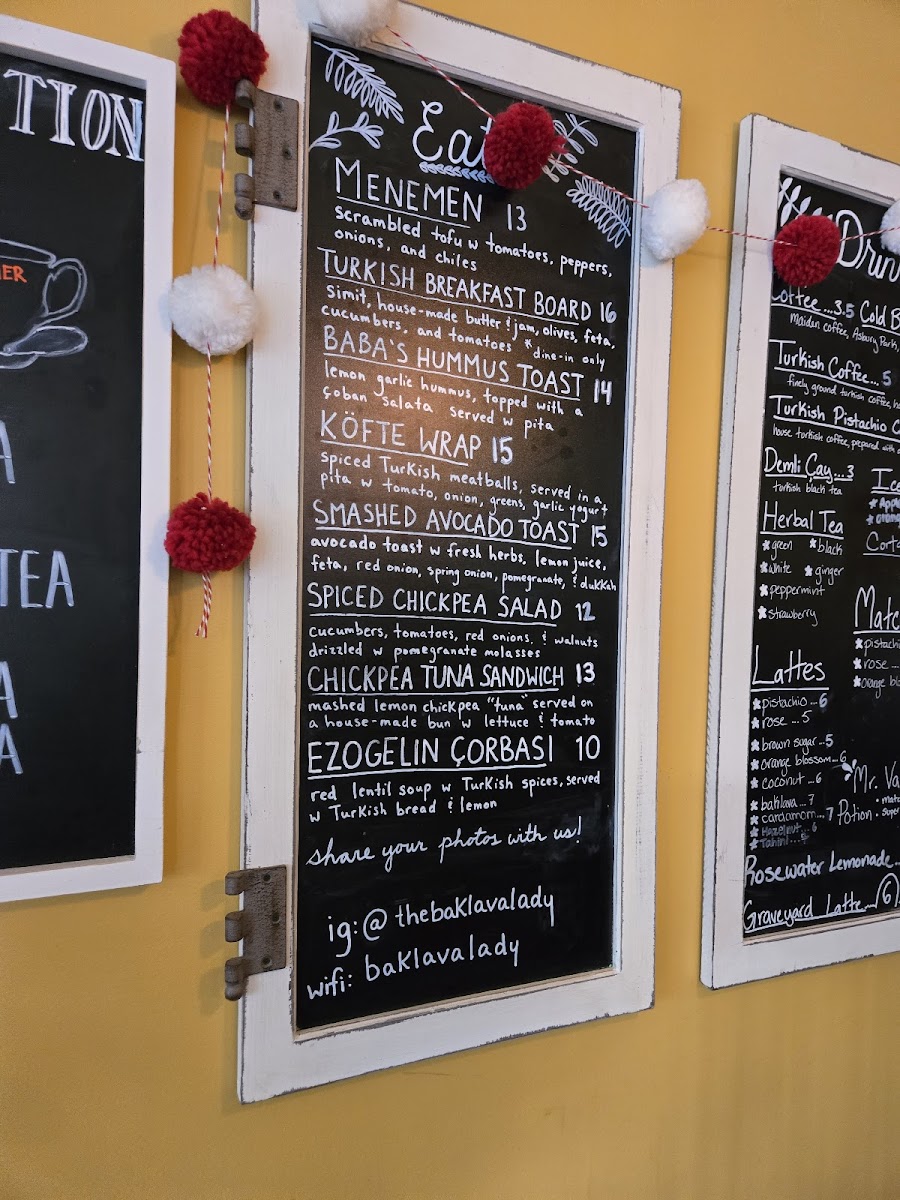 TION
TEA
Eat
MENEMEN 13
scrambled tofu w tomatoes, peppers,
onions, and chiles
TURKISH BREAKFAST BOARD 16
simit, house-made butter & jam, olives, feta,
cucumbers, and tomatoes *dine-in only
BABA'S HUMMUS TOAST 14
lemon garlic hummus, topped with a
çoban salata served w pita
KÖFTE WRAP 15
spiced Turkish meatballs, served in a
pita w tomato, onion, greens, garlic yogurt
SMASHED AVOCADO TOAST 15
avocado toast w fresh herbs, lemon juice,
feta, red onion, spring onion, pomegranate, & dukkah
SPICED CHICKPEA SALAD 12
cucumbers, tomatoes, red onions, & walnuts
drizzled w pomegranate molasses
CHICKPEA TUNA SANDWICH 13
mashed lemon chickpea "tuna" served on
a house-made bun w lettuce & tomato
EZOGELIN ÇORBASI 10
red lentil soup w Turkish spices, served
w Turkish bread & lemon
share your photos with us!
ig: @thebaklavalady
wifi: baklavalady
Drin
Coffee ...3.5 Cold B
Maiden coffee, Asbury Park,
Turkish Coffee... 5
finely ground turkish coffee,
Turkish Pistachio C
house turkish coffee, prepared with
Demli Çay...3
turkish black tea
Herbal Tea
green black
white ginger
peppermint
strawberry
Ice
Corta
Matc
pistachi
rose
orange blo
Lattes
pistachio ... 6
rose ... 5
brown sugar ...5
orange blossom... 6
coconut ... 6
baklava ... 7
cardamom... 7
Hazelnut ... 6
Tahini
Mr. Va
Potion
Rosewater Lemonade..
Graveyard Latte... 6